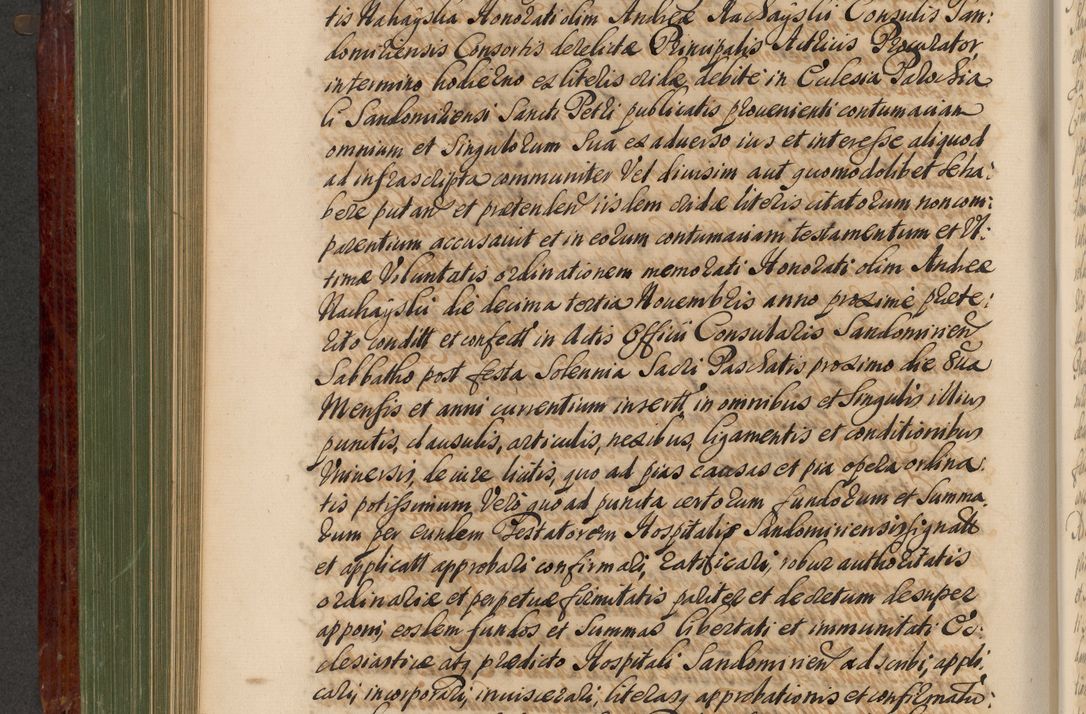 tis Nahayslia Honorati olim Andreæ Nachayslii Consulis San:
domiriensis Consortis derelictæ Principalis Actricis Procurator
in termino hodierno ex literis eiusdem debite in Ecclesia Parochia
li Sandomiriensi Sancti Petri publicatis provenienti contumaciam
omnium et Singulorum Sua ex adverso ius et interesse aliquod
ad infrascripta communiter Vel divisim aut quomodolibet se ha:
bere putan et prætenden iisdem literis citatorum non com:
parentium accusavit et in eorum contumaciam testamentum et Ul:
timæ Voluntatis ordinationem memorati Honorati olim Andreæ
Nachayslii die decima tertia Novembris anno proxime præte:
rito conditt et confect in Actis Officii Consularis Sandomirien
Sabbatho post festa Solennia Sacri Paschatis proximo die 8va
Mensis et anni currentium insertt in omnibus et Singulis illius
punctis, clausulis, articulis, nexibus, ligamentis et conditionibus
Universis, de iure licitis, quo ad pias causas et pia opera ordina
tis potissimum, Vero quo ad puncta certorum fundorum et Summa
rum per eundem Testatorem Hospitalis Sandomiriensis signatt
et applicatt approbari confirmari, ratificari, robur authoritatis
ordinariæ et perpetuæ firmitatis pariter et decretum desuper
apponi, eosdem fundos et Summas libertati et immunitati Ec:
clesiasticæ atq prædicto Hospitali Sandomirien adscribi, appli
cari, incorporari, inviscerari, literasq approbationis et confirmatio: